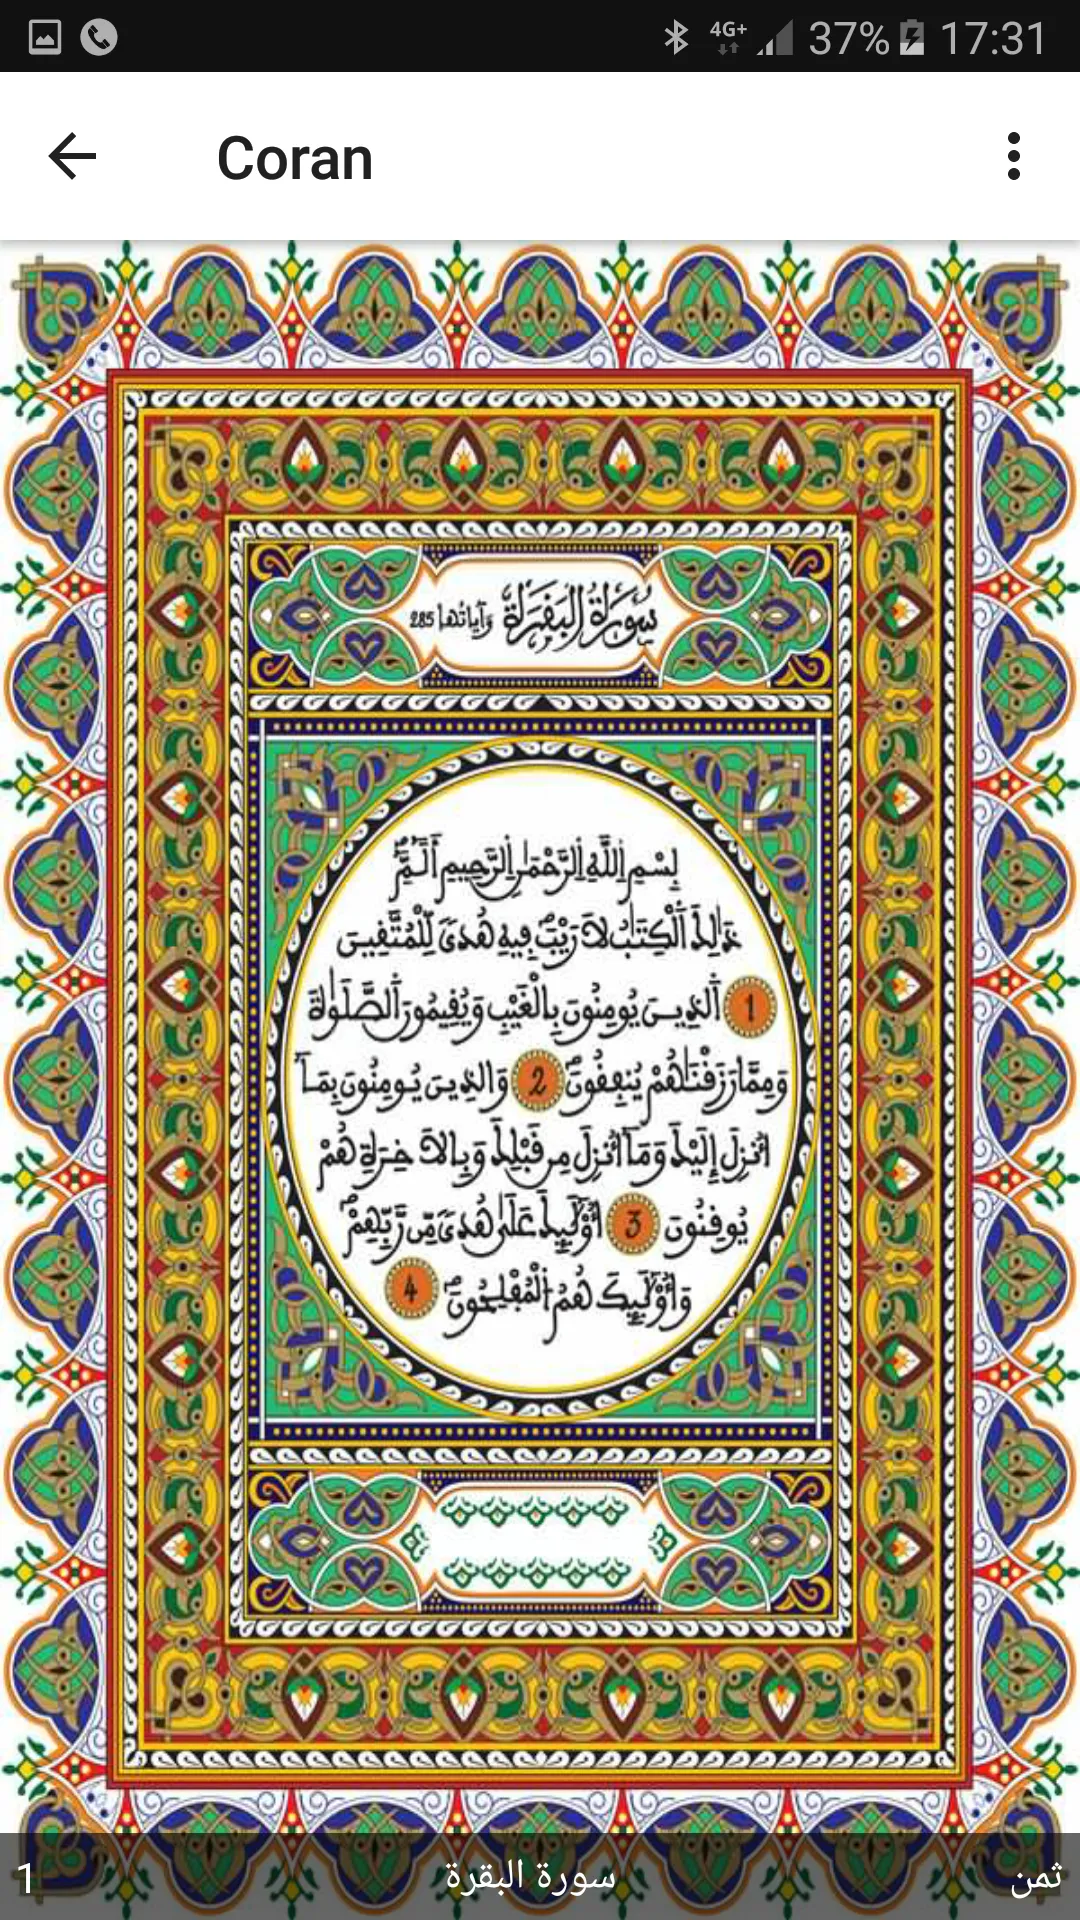 4G+ 37% 17:31
Coran
سُورَةُ الْبَقَرَةِ وَآيَاتُهَا 285
بِسْمِ اِ۬للَّهِ اِ۬لرَّحْمَٰنِ اِ۬لرَّحِيمِ أَلَٓمِّٓۖ
ذَٰلِكَ اَ۬لْكِتَٰبُ لَا رَيْبَۖ فِيهِ هُدىٗ لِّلْمُتَّفِينَ
1 اَ۬لذِينَ يُومِنُونَ بِالْغَيْبِ وَيُفِيمُونَ اَ۬لصَّلَوٰةَ
وَمِمَّا رَزَفْنَٰهُمْ يُنفِفُونَۖ 2 وَالذِينَ يُومِنُونَ بِمَآ
أُنزِلَ إِلَيْكَ وَمَآ أُنزِلَ مِن فَبْلِكَ وَبِالَاخِرَةِ هُمْ
يُوفِنُونَ 3 أُوْلَٰٓئِكَ عَلَىٰ هُدىٗ مِّن رَّبِّهِمْۖ
وَأُوْلَٰٓئِكَ هُمُ اُ۬لْمُفْلِحُونَۖ 4
1 سورة البقرة ثمن